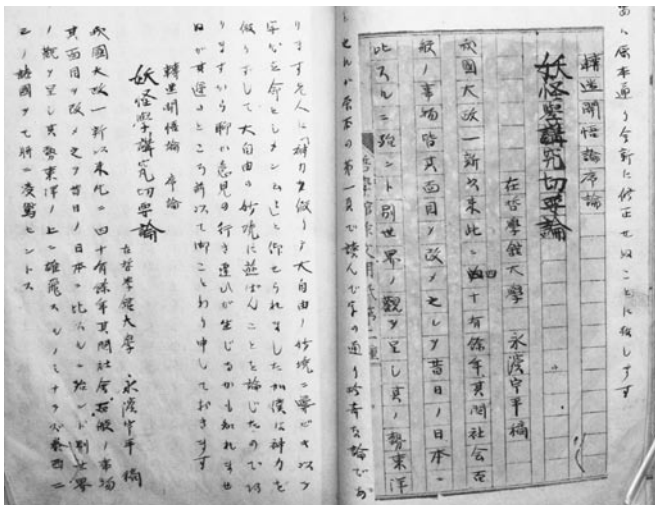 原本通り全新に修正せぬことに致します
轉迷開悟論序論
妖怪學講究切要論
在哲學館大學 永濱宇平稿
我國大政一新以来此ニ四十有餘年其間社会百
般ノ事物皆其面目ヲ改メ之レヲ昔日ノ日本ニ
比スルニ殆ント別世界ノ觀ヲ呈シ其ノ勢東洋
せんが原本の第一頁で讀んで字の通り珍奇な論であ
ります先人は「神力ヲ假リテ大自由ノ妙境ニ
仰せられましたが僕は神力を
假りずして大自由の妙境に遊ばんことを論じたので
りますから聊か意見の行き違ひが生じるかも知れませ
ぬが其邊のところ前以て御ことわり申しておきます
轉迷開悟論 序論
妖怪學講究切要論
在哲學館大學 永濱宇平 稿
我國大政一新以来此ニ四十有餘年其間社会百般ノ事物
其面目ヲ改メ之ヲ昔日ノ日本ニ比スルニ殆ント別世界
ノ觀ヲ呈シ其勢東洋ノ上ニ雄飛スルノミナラズ泰西ニ